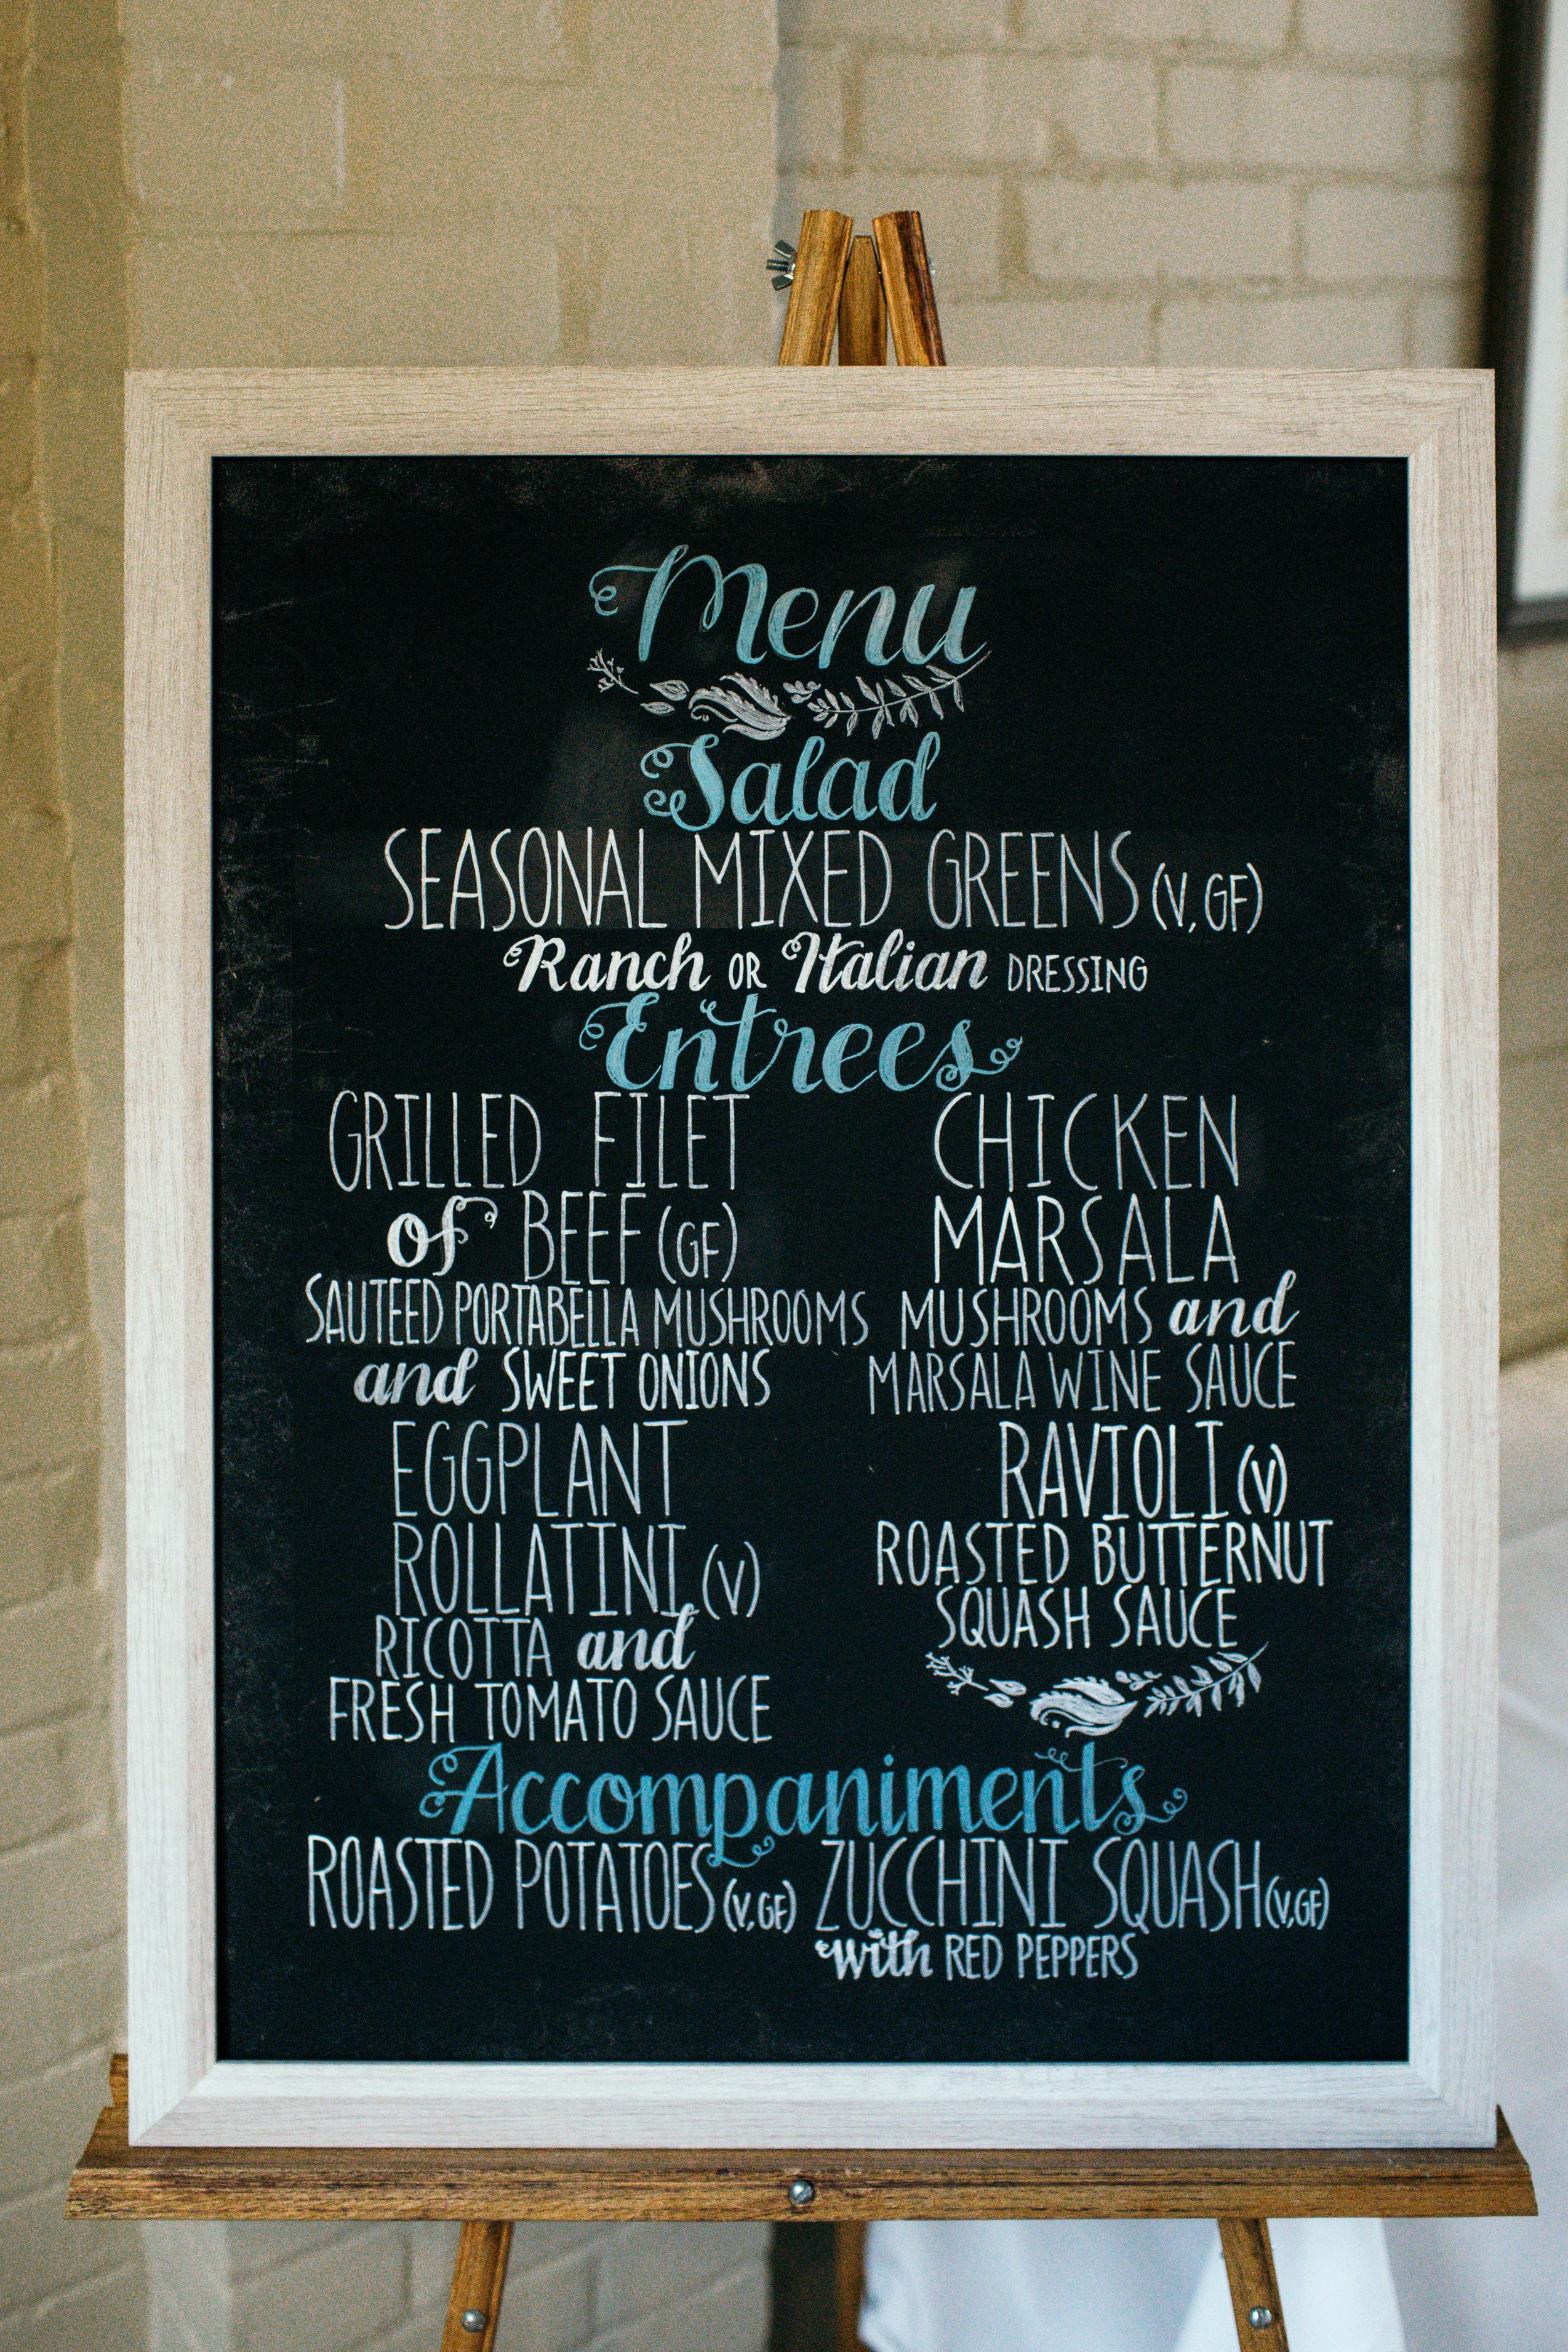 Menu
Salad
SEASONAL MIXED GREENS (V, GF)
Ranch OR Italian DRESSING
Entrees
GRILLED FILET
of BEEF (GF)
SAUTEED PORTABELLA MUSHROOMS
and SWEET ONIONS
CHICKEN
MARSALA
MUSHROOMS and
MARSALA WINE SAUCE
EGGPLANT
ROLLATINI (V)
RICOTTA and
FRESH TOMATO SAUCE
RAVIOLI (V)
ROASTED BUTTERNUT
SQUASH SAUCE
Accompaniments
ROASTED POTATOES (V, GF)
ZUCCHINI SQUASH (V, GF)
with RED PEPPERS